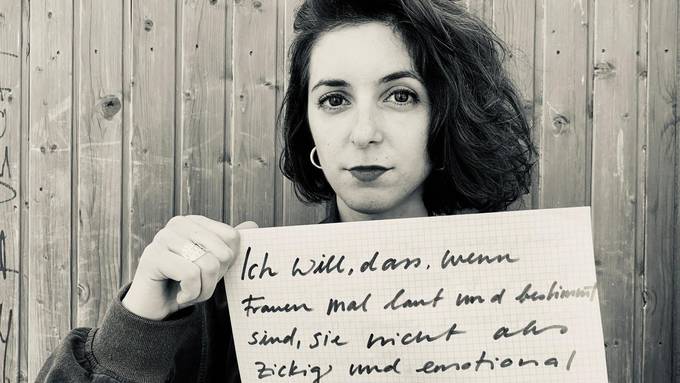 Ich will, dass, wenn
Frauen mal laut und bestimmt
sind, sie nicht als
zickig und emotional